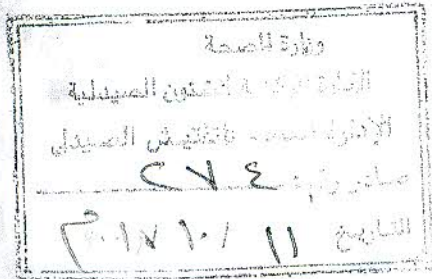 وزارة الصحة
الإدارة المركزية للشئون الصيدلية
الإدارة العامة للتفتيش الصيدلي
صادر رقم: ٢٧٤
التاريخ ١١ / ١٠ / ٢٠١٧